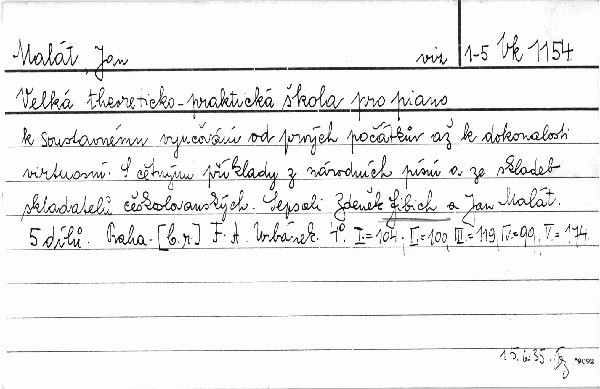 Malát, Jan viz 1-5 Vk 1154
Velká theoreticko-praktická škola pro piano
k soustavnému vyučování od prvých počátkův až k dokonalosti
virtuosní. S četnými příklady z národních písní a ze skladeb
skladatelů českoslovanských. Sepsali Zdeněk Fibich a Jan Malát.
5 dílů. Praha - [b.r.] F. A. Urbánek. 4°. I.=104, I.=100, III=119, IV.=99, V.=174.
15.6.35.